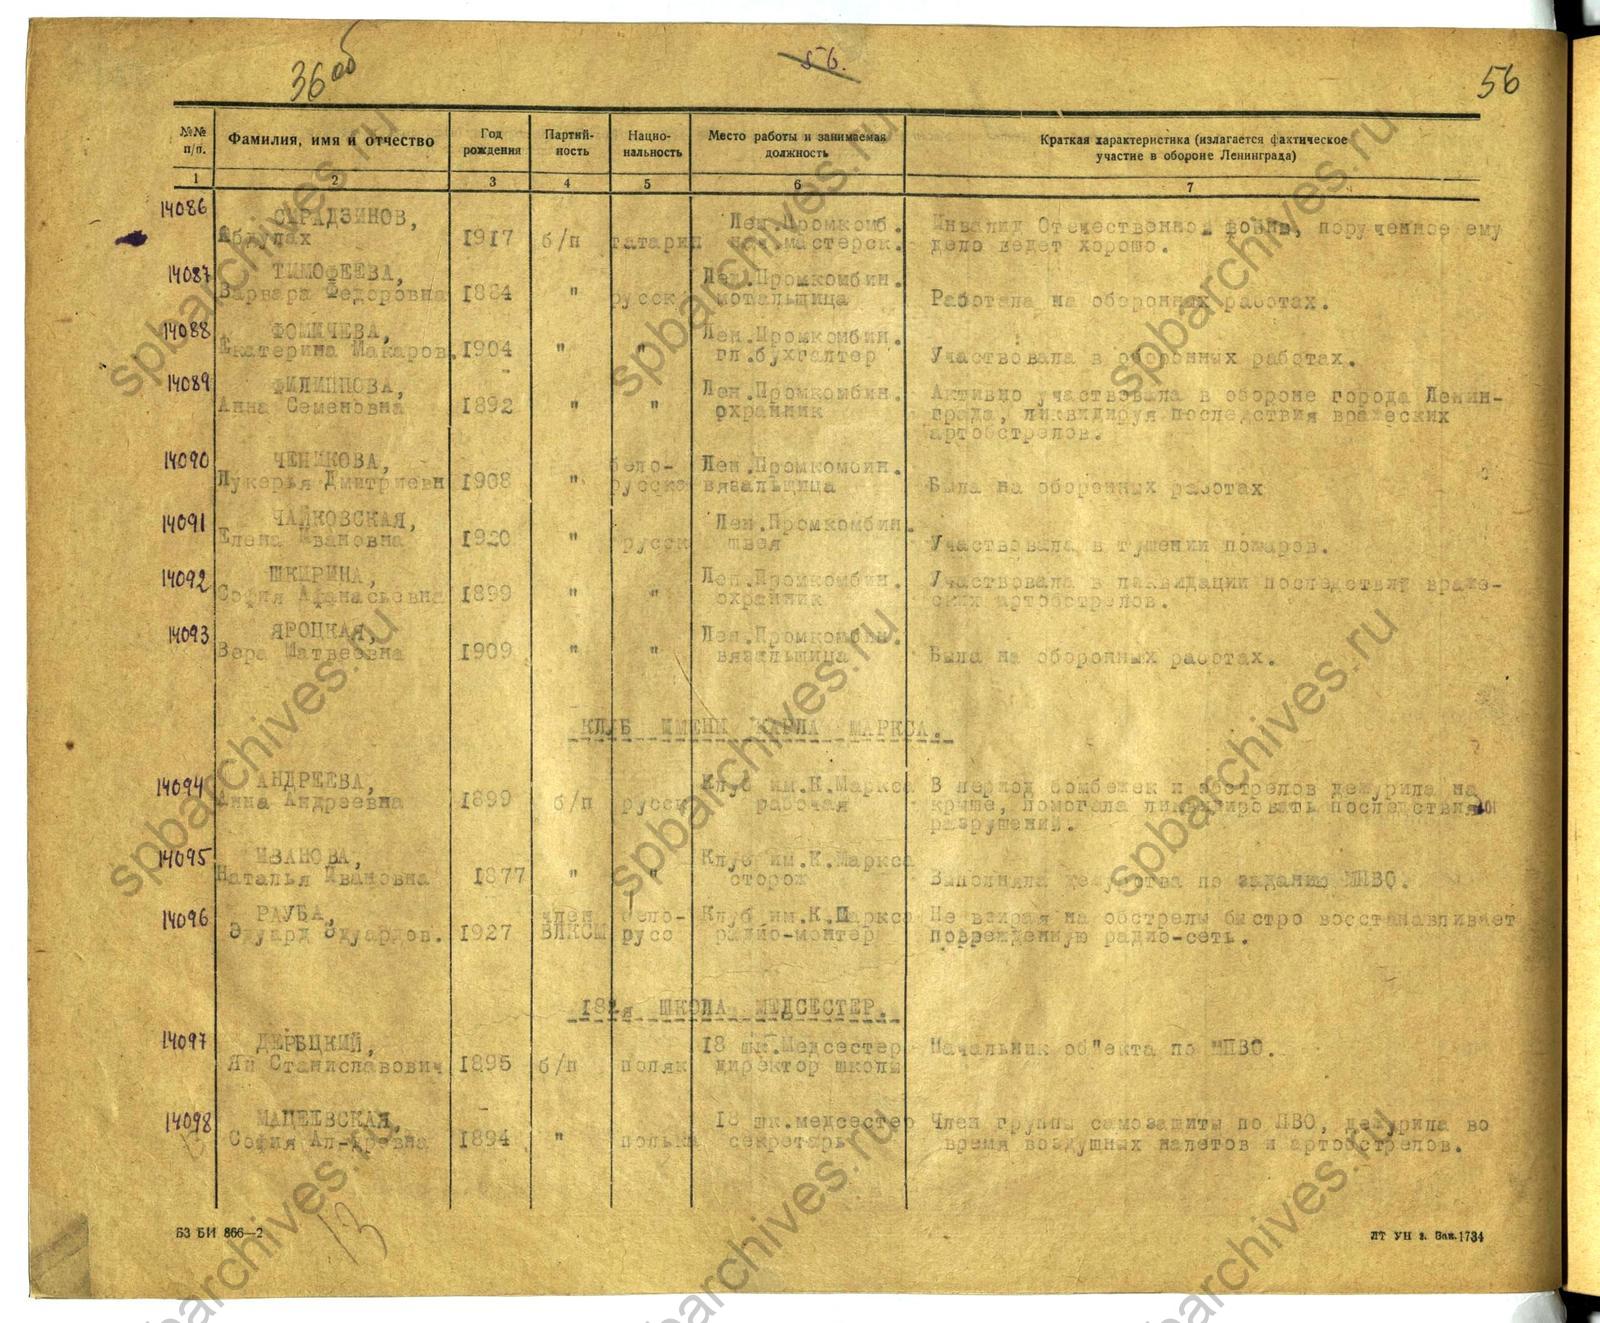 36об
56.
56
№№ п/п.
Фамилия, имя и отчество
Год рождения
Партий-ность
Нацио-нальность
Место работы и занимаемая должность
Краткая характеристика (излагается фактическое участие в обороне Ленинграда)
1 2 3 4 5 6 7
14086 Лен.Промкомб. Инвалид Отечественной войны, порученное ему
Абдулах 1917 б/п татарин мастерск. дело ведет хорошо.
14087 ТИМОФЕЕВА, Лен.Промкомбин.
Варвара Федоровна 1884 " русск мотальщица Работала на оборонных работах.
14088 ФОМИЧЕВА, Лен.Промкомбин.
Екатерина Макаров. 1904 " " гл.бухгалтер Участвовала в оборонных работах.
14089 ФИЛИППОВА, Лен.Промкомбин. Активно участвовала в обороне города Ленин-
Анна Семеновна 1892 " " охранник града, ликвидируя последствия вражеских
артобстрелов.
14090 ЧЕНИКОВА, бело- Лен.Промкомбин.
Лукерья Дмитриевн 1908 " русско вязальщица Была на оборонных работах
14091 ЧАЙКОВСКАЯ, Лен.Промкомбин.
Елена Ивановна 1920 " русск швея Участвовала в тушении пожаров.
14092 ШКИРИНА, Лен.Промкомбин. Участвовала в ликвидации последствий враже-
София Афанасьевна 1899 " " охранник ских артобстрелов.
14093 ЯРОЦКАЯ, Лен.Промкомбин.
Вера Матвеевна 1909 " " вязальщица Была на оборонных работах.
КЛУБ ИМЕНИ КАРЛА МАРКСА.
14094 АНДРЕЕВА, Клуб им.К.Маркса В период бомбежек и обстрелов дежурила на
Анна Андреевна 1899 б/п русск рабочая крыше, помогала ликвидировать последствия
разрушений.
14095 ИВАНОВА, Клуб им.К.Маркса
Наталья Ивановна 1877 " " сторож Выполняла дежурства по заданию МПВО.
14096 РАУБА, член бело- Клуб им.К.Маркса Не взирая на обстрелы быстро восстанавливает
Эдуард Эдуардов. 1927 ВЛКСМ русс радио-монтер поврежденную радио-сеть.
18я ШКОЛА МЕДСЕСТЕР.
14097 18 шк.Медсестер Начальник об"екта по МПВО.
Ян Станиславович 1895 б/п поляк директор школы
14098 МАЦЕЕВСКАЯ, 18 шк.медсестер Член группы самозащиты по ПВО, дежурила во
София Ал-древна 1894 " полька секретарь время воздушных налетов и артобстрелов.
13
БЗ БИ 866—2
ЛТ УН з. Зак.1734
spbarchives.ru